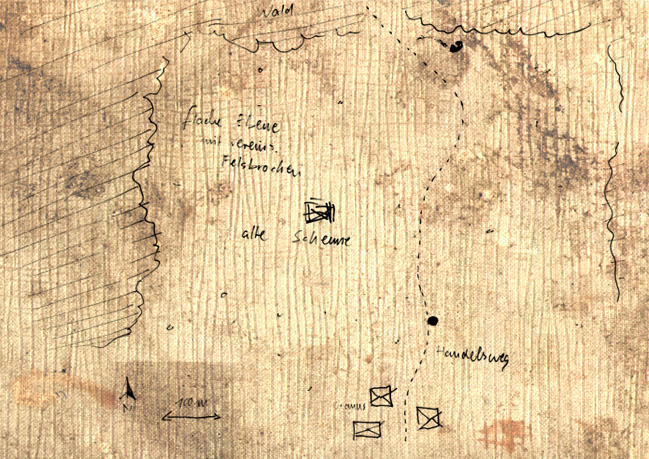 Wald
flache Ebene
mit vereinz.
Felsbrocken
alte Scheune
Handelsweg
N
100 m